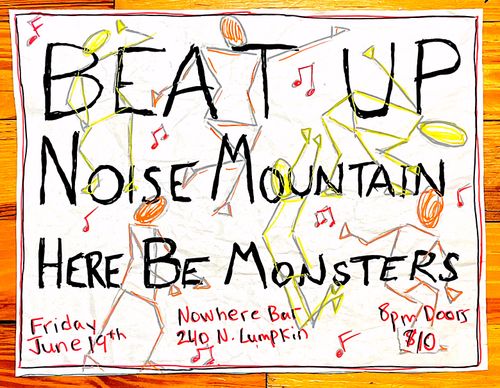 BEAT UP
NOISE MOUNTAIN
HERE BE MONSTERS
Friday
June 19th
Nowhere Bar
240 N. Lumpkin
8pm Doors
$10